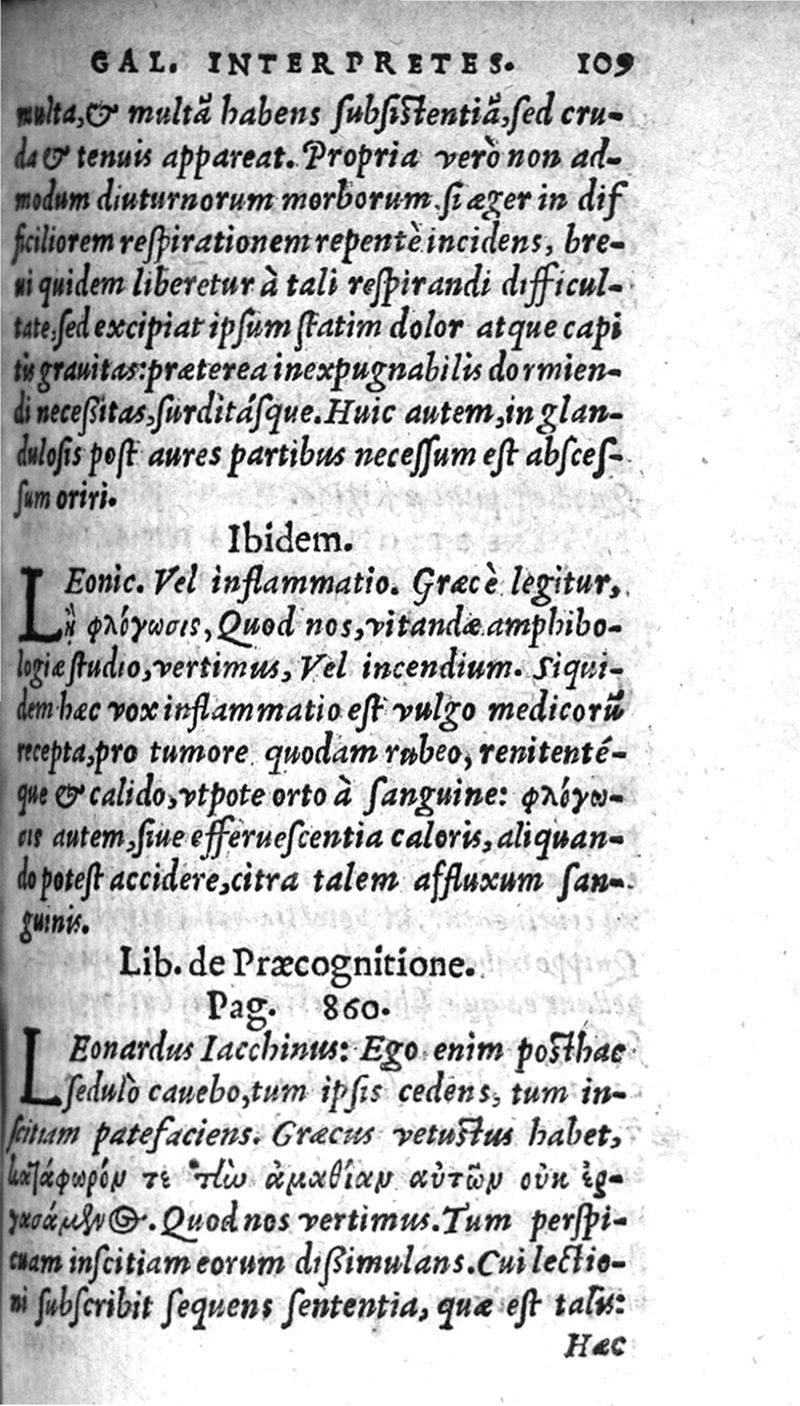 GAL. INTERPRETES. 109
multa,& multã habens ſubſiſtentiã,ſed cru-
da & tenuis appareat. Propria verò non ad-
modum diuturnorum morborum, ſi æger in dif
ficiliorem reſpirationem repentè incidens, bre-
ui quidem liberetur à tali reſpirandi difficul-
tate,ſed excipiat ipſum ſtatim dolor atque capi
tis grauitas: præterea inexpugnabilis dormien-
di neceßitas,ſurditáſque. Huic autem,in glan-
duloſis poſt aures partibus neceſſum eſt abſceſ-
ſum oriri.
Ibidem.
LEonic. Vel inflammatio. Græcè legitur,
ἢ φλόγωσις, Quod nos,vitandæ amphibo-
logiæ ſtudio,vertimus, Vel incendium. Siqui-
dem hæc vox inflammatio eſt vulgo medicorũ
recepta,pro tumore quodam rubeo, renitenté-
que & calido,vtpote orto à ſanguine: φλόγω-
σις autem,ſiue efferueſcentia caloris,aliquan-
do poteſt accidere,citra talem affluxum ſan-
guinis.
Lib. de Præcognitione.
Pag. 860.
LEonardus Iacchinus: Ego enim poſthac
ſedulò cauebo,tum ipſis cedens, tum in-
ſcitiam patefaciens. Græcus vetuſtus habet,
καταφωρόν τε τὴν ἀμαθίαν αὐτῶν οὐκ ἐρ-
γασάμενος. Quod nos vertimus. Tum perſpi-
cuam inſcitiam eorum dißimulans. Cui lectio-
ni ſubſcribit ſequens ſententia, quæ eſt talis:
Hæc